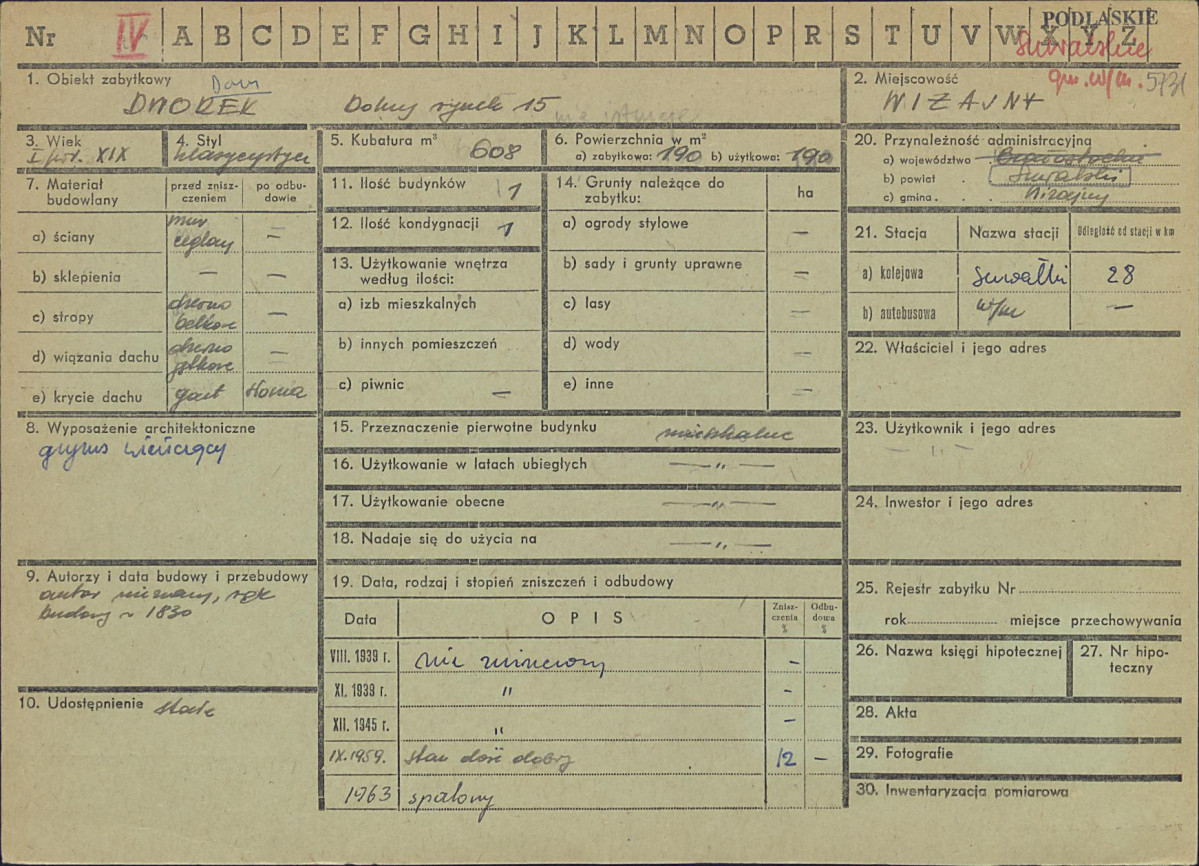 PODLASKIE
Nr IV A B C D E F G H I J K L M N O P R S T U V W X Y Z
Suwalskie
gm. w/m. 5731
1. Obiekt zabytkowy Dom
DWOREK Dolny rynek 15
nie istnieje
2. Miejscowość
WIŻAJNY
3. Wiek
I poł. XIX
4. Styl
klasycystycz
5. Kubatura m³ 608
6. Powierzchnia w m²
a) zabytkowa: 190 b) użytkowa: 190
20. Przynależność administracyjna
a) województwo Białostockie
b) powiat . Suwalski
c) gmina . . Wiżajny
7. Materiał budowlany
przed zniszczeniem
po odbudowie
a) ściany mur ceglany —
b) sklepienia — —
c) stropy drewno belkowe —
d) wiązania dachu drewno —
e) krycie dachu gont słoma
11. Ilość budynków 1
12. Ilość kondygnacji 1
13. Użytkowanie wnętrza
według ilości:
a) izb mieszkalnych
b) innych pomieszczeń
c) piwnic —
14. Grunty należące do
zabytku:
ha
a) ogrody stylowe —
b) sady i grunty uprawne —
c) lasy —
d) wody —
e) inne —
21. Stacja Nazwa stacji Odległość od stacji w km
a) kolejowa Suwałki 28
b) autobusowa w/m —
22. Właściciel i jego adres
8. Wyposażenie architektoniczne
gzyms wieńczący
15. Przeznaczenie pierwotne budynku mieszkalne
16. Użytkowanie w latach ubiegłych — „ —
17. Użytkowanie obecne — „ —
18. Nadaje się do użycia na — „ —
23. Użytkownik i jego adres
— „ —
24. Inwestor i jego adres
9. Autorzy i data budowy i przebudowy
autor nieznany, rok
budowy ~ 1830
10. Udostępnienie stałe
19. Data, rodzaj i stopień zniszczeń i odbudowy
Data OPIS Zniszczenia % Odbudowa %
VIII. 1939 r. nie zniszczony —
XI. 1939 r. „ —
XII. 1945 r. „ —
IX.1959. stan dość dobry 12 —
1963 spalony
25. Rejestr zabytku Nr
rok miejsce przechowywania
26. Nazwa księgi hipotecznej
27. Nr hipoteczny
28. Akta
29. Fotografie
30. Inwentaryzacja pomiarowa